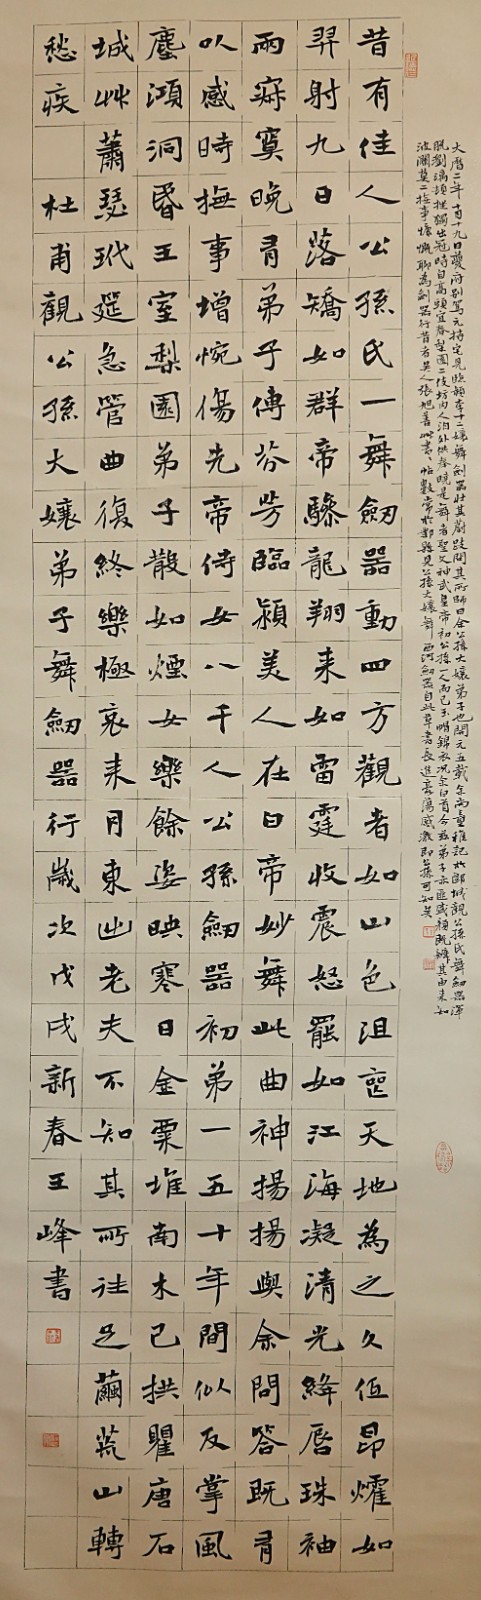 大曆二年十月十九日夔府別駕元持宅見臨潁李十二孃舞劍器壯其蔚跂問其所師曰余公孫大孃弟子也開元五載余尚童稚記於郾城觀公孫氏舞劍器渾
脫瀏漓頓挫獨出冠時自高頭宜春梨園二伎坊內人洎外供奉曉是舞者聖文神武皇帝初公孫一人而已玉貌錦衣況余白首今茲弟子亦匪盛顏既辨其由来知
波瀾莫二撫事慷慨聊為劍器行昔者吳人張旭善草書、帖數常於鄴縣見公孫大孃舞西河劍器自此草書長進豪蕩感激即公孫可知矣
昔有佳人公孫氏一舞劍器動四方觀者如山色沮喪天地為之久低昂燿如
羿射九日落矯如群帝驂龍翔来如雷霆收震怒罷如江海凝清光絳唇珠袖
兩寂寞晚有弟子傳芬芳臨潁美人在白帝妙舞此曲神揚揚與余問答既有
以感時撫事增惋傷先帝侍女八千人公孫劍器初第一五十年間似反掌風
塵澒洞昏王室梨園弟子散如煙女樂餘姿映寒日金粟堆南木已拱瞿唐石
城艸蕭瑟玳筵急管曲復終樂極哀来月東出老夫不知其所往足繭荒山轉
愁疾 杜甫觀公孫大孃弟子舞劍器行歲次戊戌新春王峰書